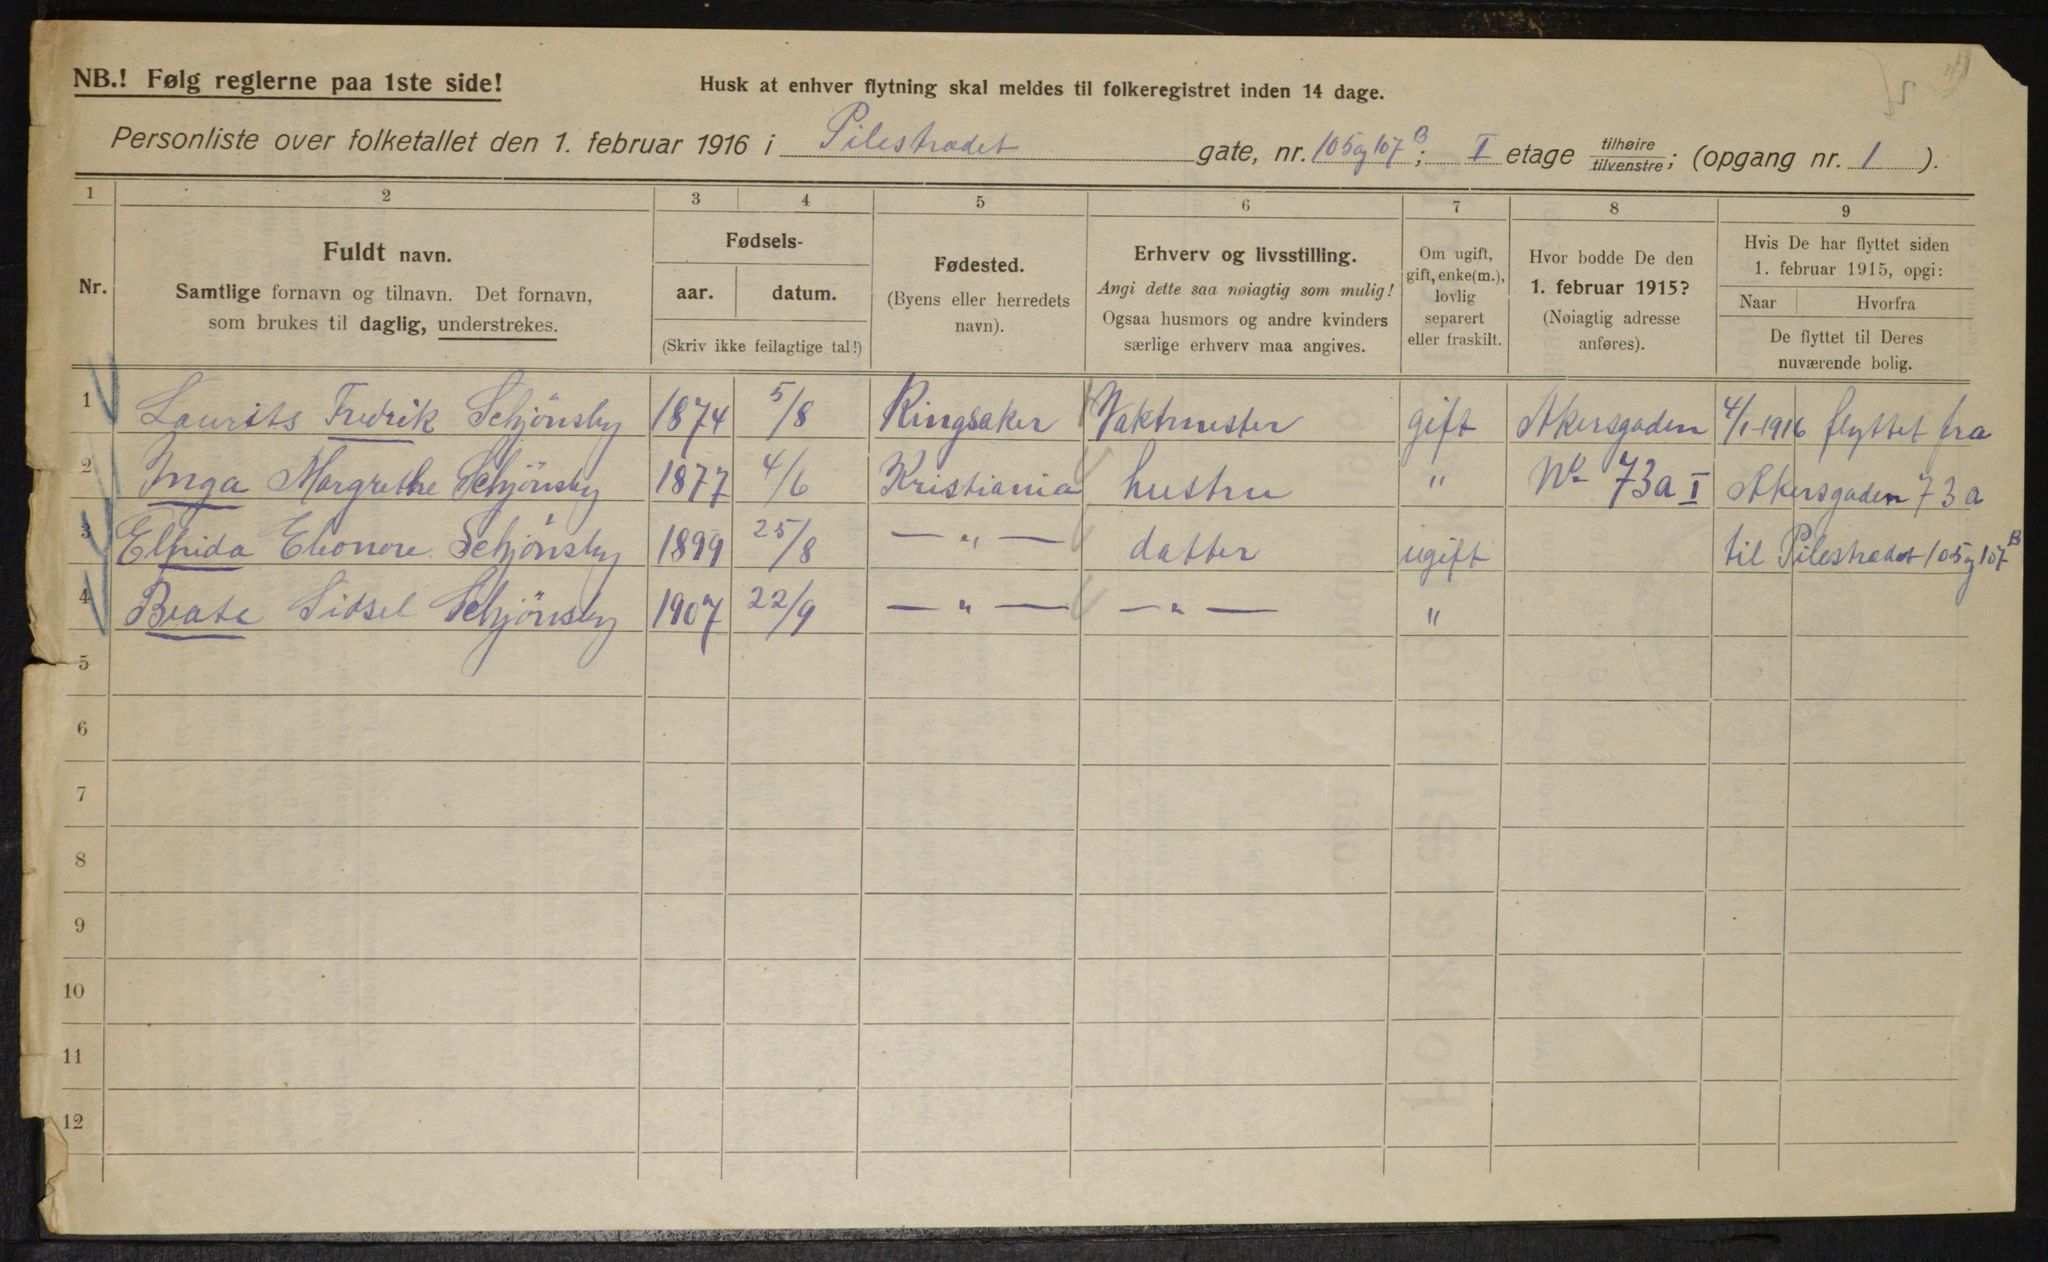 NB.! Følg reglerne paa 1ste side!
Husk at enhver flytning skal meldes til folkeregistret inden 14 dage.
Personliste over folketallet den 1. februar 1916 i Pilestrædet gate, nr. 105 og 107 B; I etage tilhøire tilvenstre; (opgang nr. 1 ).
1 2 3 4 5 6 7 8 9
Nr.
Fuldt navn.
Samtlige fornavn og tilnavn. Det fornavn,
som brukes til daglig, understrekes.
Fødsels-
aar. datum.
(Skriv ikke feilagtige tal!)
Fødested.
(Byens eller herredets
navn).
Erhverv og livsstilling.
Angi dette saa nøiagtig som mulig!
Ogsaa husmors og andre kvinders
særlige erhverv maa angives.
Om ugift,
gift, enke(m.),
lovlig
separert
eller fraskilt.
Hvor bodde De den
1. februar 1915?
(Nøiagtig adresse
anføres).
Hvis De har flyttet siden
1. februar 1915, opgi:
Naar Hvorfra
De flyttet til Deres
nuværende bolig.
1 Laurits Fredrik Schjönsby 1874 5/8 Ringsaker Vaktmester gift Akersgaden 4/1-1916 flyttet fra
2 Inga Margrethe Schjönsby 1877 4/6 Kristiania hustru " No 73a I Akersgaden 73a
3 Elfrida Eleonore Schjönsby 1899 25/8 — " — datter ugift til Pilestrædet 105 og 107 B
4 Beate Sidsel Schjönsby 1907 22/9 — " — — " — "
5
6
7
8
9
10
11
12